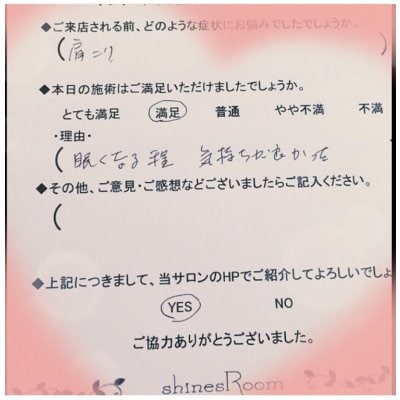 ◆ご来店される前、どのような症状にお悩みでしたでしょうか。
(肩こり )
◆本日の施術はご満足いただけましたでしょうか。
とても満足 満足 普通 やや不満 不満
・理由・
(眠くなる程 気持ちが良かった
◆その他、ご意見・ご感想などございましたらご記入ください。
(
◆上記につきまして、当サロンのHPでご紹介してよろしいでしょ
YES NO
ご協力ありがとうございました。
shinesRoom